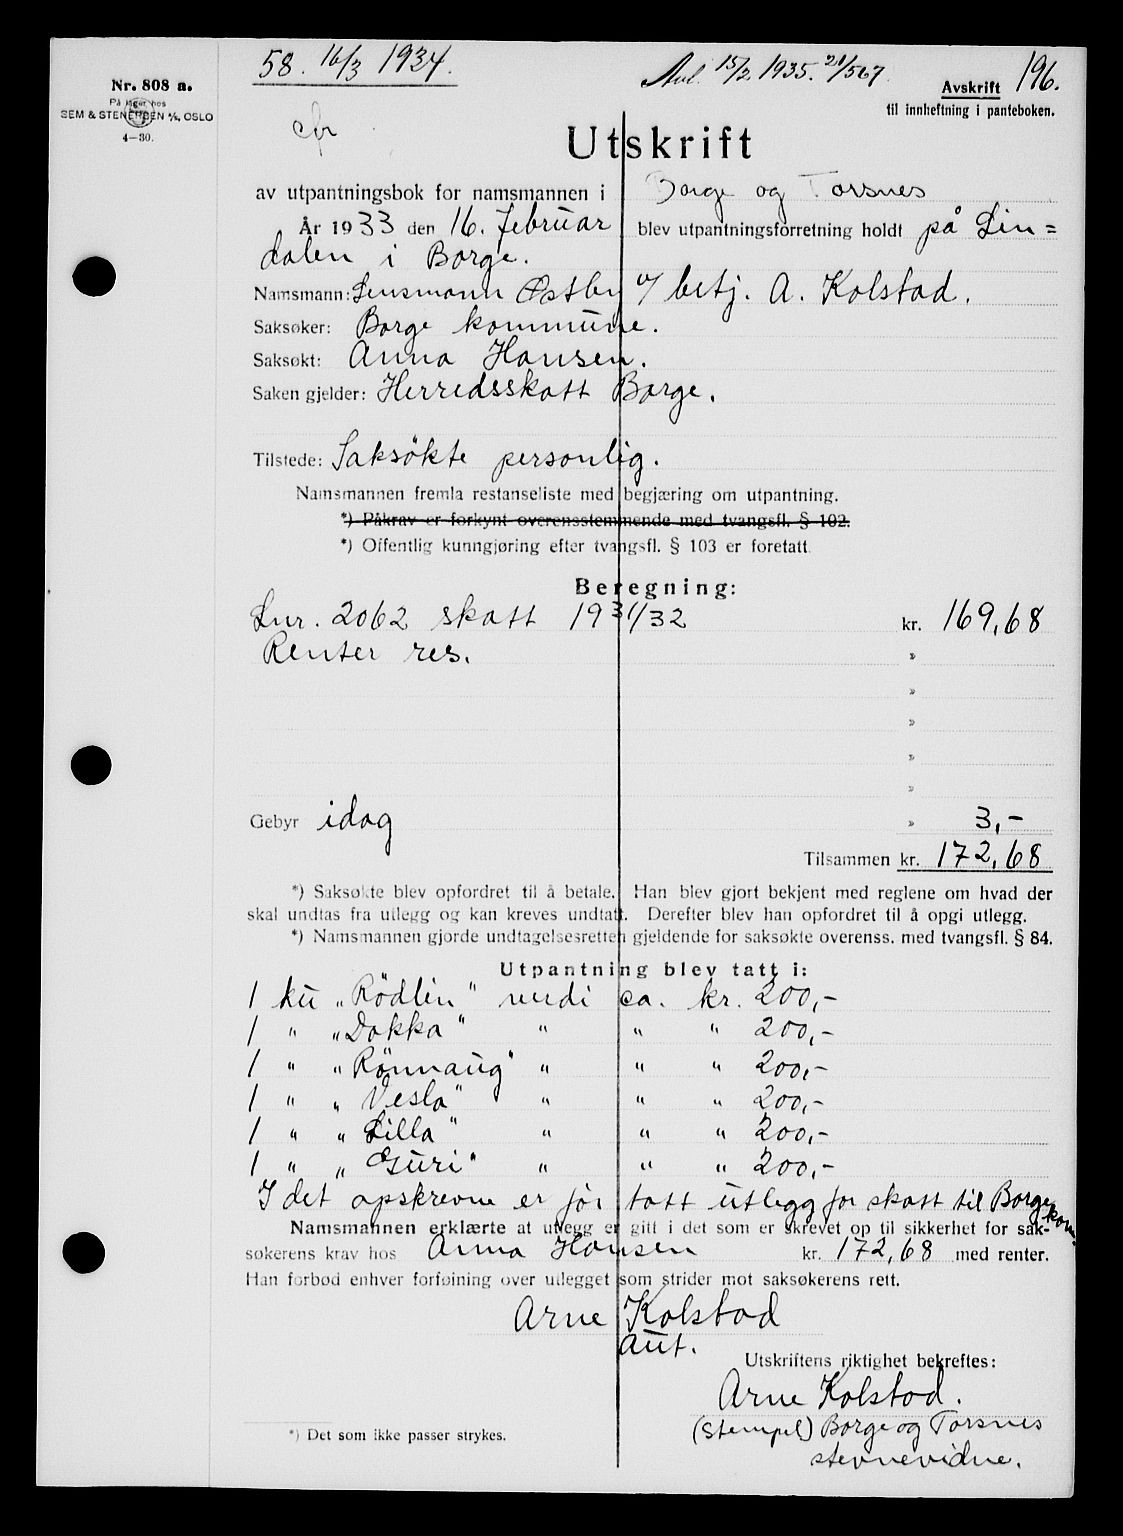 58. 16/3 1934.
Avl 15/2 1935. 21/567
196.
Nr. 808 a.
På lager hos
SEM & STENERSEN A/S, OSLO
4—30.
Avskrift
til innheftning i panteboken.
cfr
Utskrift
av utpantningsbok for namsmannen i Borge og Torsnes
År 1933 den 16. februar blev utpantningsforretning holdt på Lin=
dalen i Borge.
Namsmann: Lensmann Østby v/ betj. A. Kolstad.
Saksøker: Borge kommune.
Saksøkt: Anna Hansen.
Saken gjelder: Herredsskatt Borge.
Tilstede: Saksökte personlig.
Namsmannen fremla restanseliste med begjæring om utpantning.
*) Påkrav er forkynt overensstemmende med tvangsfl. § 102.
*) Offentlig kunngjøring efter tvangsfl. § 103 er foretatt.
Beregning:
Lnr. 2062 skatt 1931/32 kr. 169,68
Renter res. »
»
»
»
»
Gebyr idag » 3,-
Tilsammen kr. 172,68
*) Saksøkte blev opfordret til å betale. Han blev gjort bekjent med reglene om hvad der
skal undtas fra utlegg og kan kreves undtatt. Derefter blev han opfordret til å opgi utlegg.
*) Namsmannen gjorde undtagelsesretten gjeldende for saksøkte overenss. med tvangsfl. § 84.
Utpantning blev tatt i:
1 ku „Rödlin" verdi ca. kr. 200,-
1 " „Dokka" " " " 200,-
1 " „Rönnaug" " " " 200,-
1 " „Vesla" " " " 200,-
1 " „Lilla" " " " 200,-
1 " „Guri" " " " 200,-
I det opskrevne er för tatt utlegg for skatt til Borge kom.
Namsmannen erklærte at utlegg er gitt i det som er skrevet op til sikkerhet for sak-
søkerens krav hos Anna Hansen kr. 172,68 med renter.
Han forbød enhver forføining over utlegget som strider mot saksøkerens rett.
Arne Kolstad
aut.
Utskriftens riktighet bekreftes:
Arne Kolstad.
(Stempel) Borge og Torsnes
stevnevidne.
*) Det som ikke passer strykes.